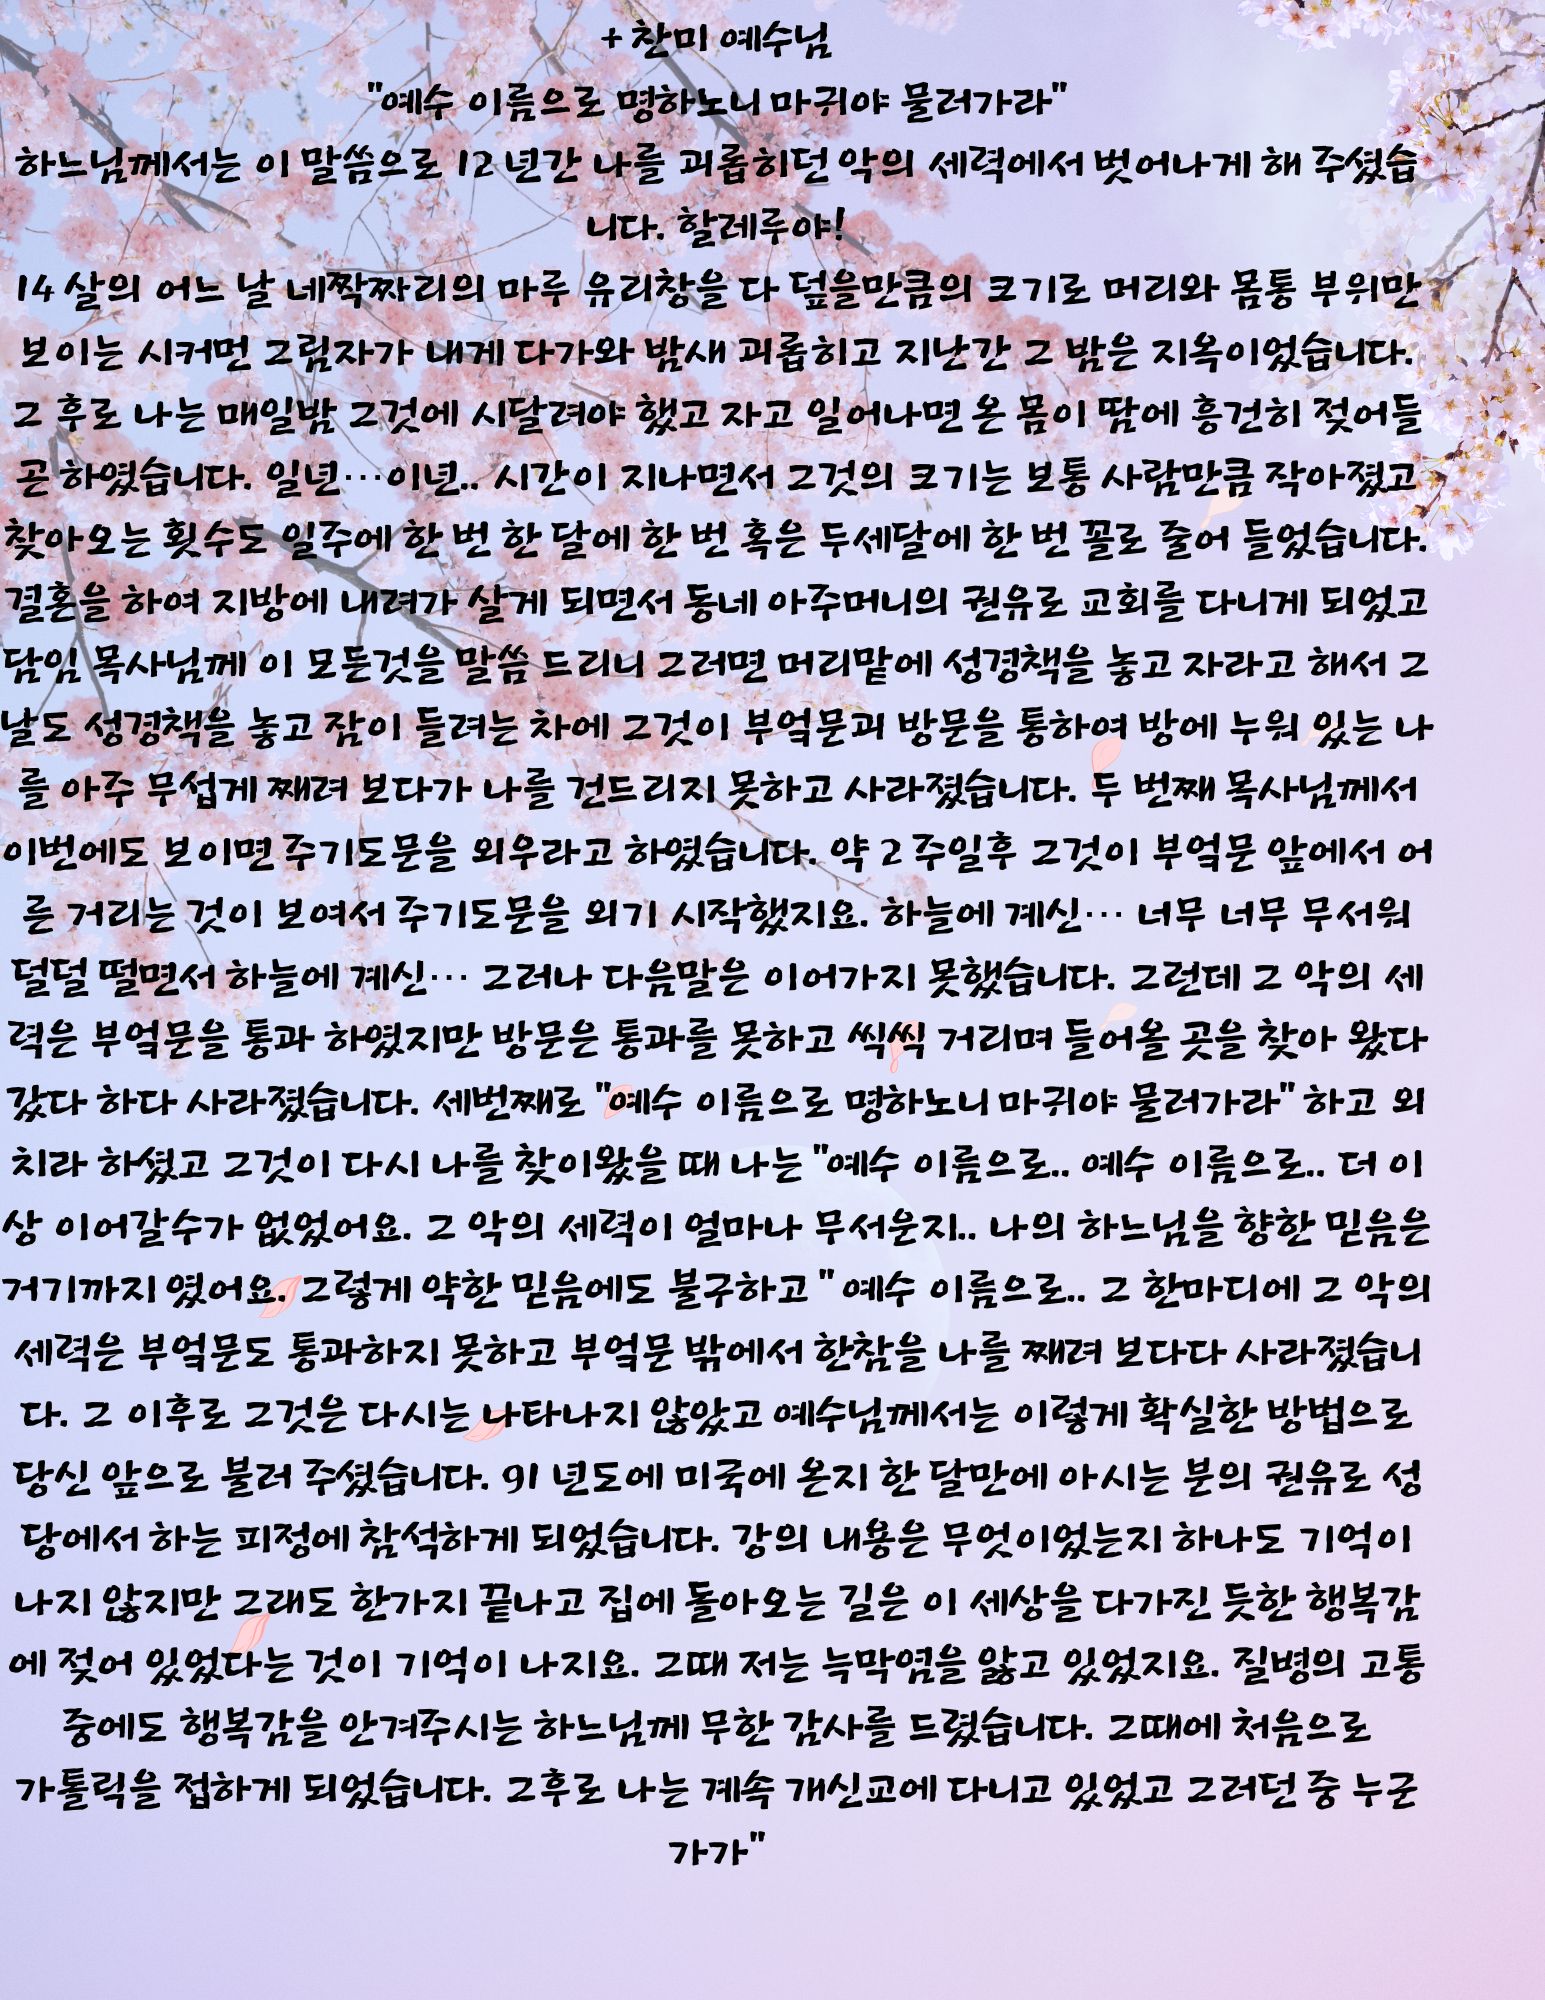 + 찬미 예수님
"예수 이름으로 명하노니 마귀야 물러가라"
하느님께서는 이 말씀으로 12 년간 나를 괴롭히던 악의 세력에서 벗어나게 해 주셨습
니다. 할레루야!
14 살의 어느 날 네짝짜리의 마루 유리창을 다 덮을만큼의 크기로 머리와 몸통 부위만
보이는 시커먼 그림자가 내게 다가와 밤새 괴롭히고 지난간 그 밤은 지옥이었습니다.
그 후로 나는 매일밤 그것에 시달려야 했고 자고 일어나면 온 몸이 땀에 흥건히 젖어들
곤 하였습니다. 일년…이년.. 시간이 지나면서 그것의 크기는 보통 사람만큼 작아졌고
찾아오는 횟수도 일주에 한 번 한 달에 한 번 혹은 두세달에 한 번 꼴로 줄어 들었습니다.
결혼을 하여 지방에 내려가 살게 되면서 동네 아주머니의 권유로 교회를 다니게 되었고
담임 목사님께 이 모든것을 말씀 드리니 그러면 머리맡에 성경책을 놓고 자라고 해서 그
날도 성경책을 놓고 잠이 들려는 차에 그것이 부엌문과 방문을 통하여 방에 누워 있는 나
를 아주 무섭게 째려 보다가 나를 건드리지 못하고 사라졌습니다. 두 번째 목사님께서
이번에도 보이면 주기도문을 외우라고 하였습니다. 약 2 주일후 그것이 부엌문 앞에서 어
른 거리는 것이 보여서 주기도문을 외기 시작했지요. 하늘에 계신… 너무 너무 무서워
덜덜 떨면서 하늘에 계신… 그러나 다음말은 이어가지 못했습니다. 그런데 그 악의 세
력은 부엌문을 통과 하였지만 방문은 통과를 못하고 씩씩 거리며 들어올 곳을 찾아 왔다
갔다 하다 사라졌습니다. 세번째로 "예수 이름으로 명하노니 마귀야 물러가라" 하고 외
치라 하셨고 그것이 다시 나를 찾이왔을 때 나는 "예수 이름으로.. 예수 이름으로.. 더 이
상 이어갈수가 없었어요. 그 악의 세력이 얼마나 무서운지.. 나의 하느님을 향한 믿음은
거기까지 였어요. 그렇게 약한 믿음에도 불구하고 " 예수 이름으로.. 그 한마디에 그 악의
세력은 부엌문도 통과하지 못하고 부엌문 밖에서 한참을 나를 째려 보다다 사라졌습니
다. 그 이후로 그것은 다시는 나타나지 않았고 예수님께서는 이렇게 확실한 방법으로
당신 앞으로 불러 주셨습니다. 91 년도에 미국에 온지 한 달만에 아시는 분의 권유로 성
당에서 하는 피정에 참석하게 되었습니다. 강의 내용은 무엇이었는지 하나도 기억이
나지 않지만 그래도 한가지 끝나고 집에 돌아오는 길은 이 세상을 다가진 듯한 행복감
에 젖어 있었다는 것이 기억이 나지요. 그때 저는 늑막염을 앓고 있었지요. 질병의 고통
중에도 행복감을 안겨주시는 하느님께 무한 감사를 드렸습니다. 그때에 처음으로
가톨릭을 접하게 되었습니다. 그후로 나는 계속 개신교에 다니고 있었고 그러던 중 누군
가가"